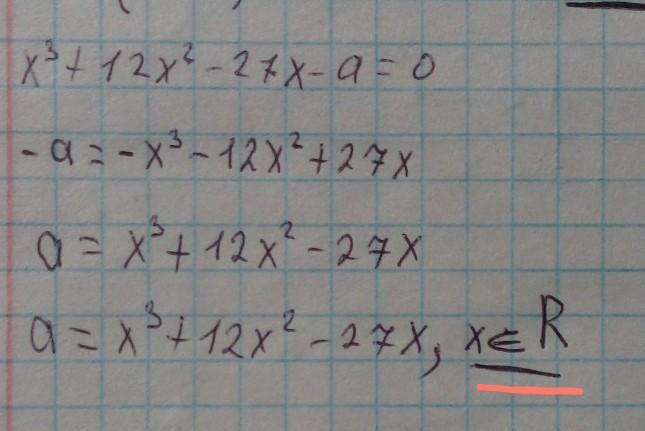 x³ + 12x² - 27x - a = 0
-a = -x³ - 12x² + 27x
a = x³ + 12x² - 27x
a = x³ + 12x² - 27x, x ∈ R